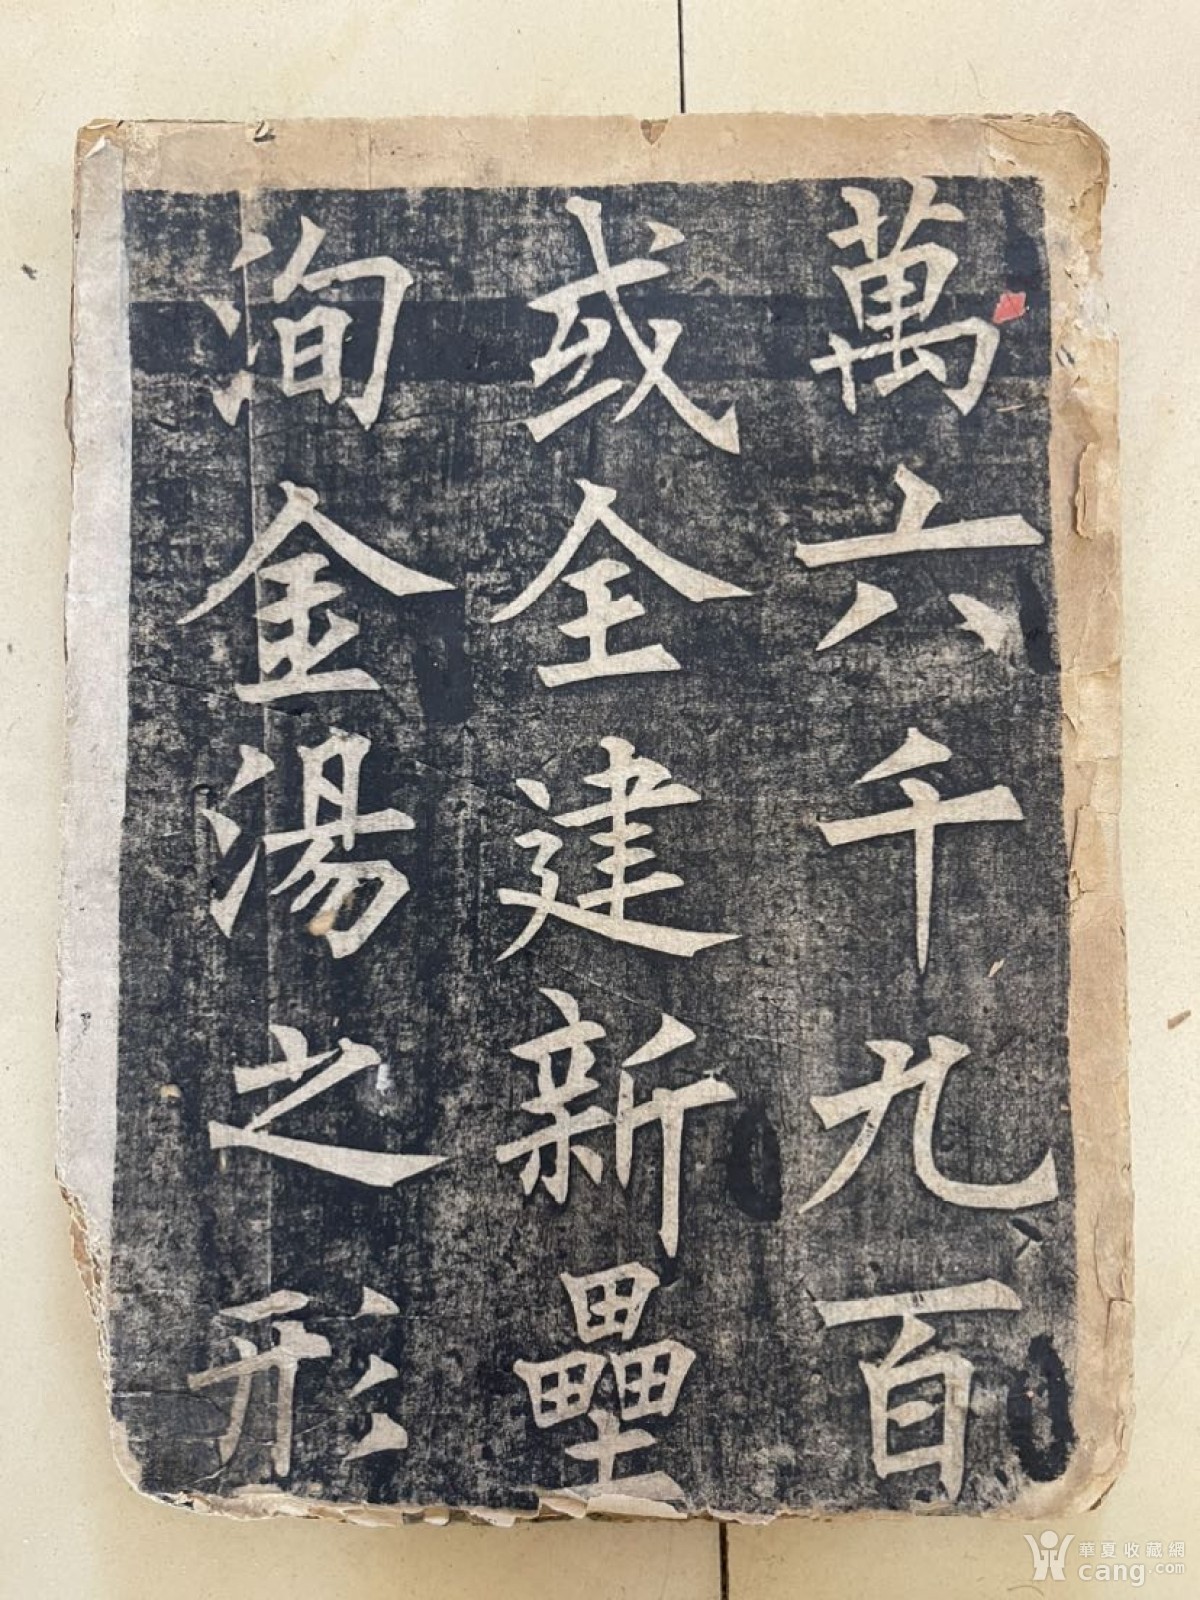 萬六千九百
或全建新壘
洵金湯之形
華夏收藏網
cang.com